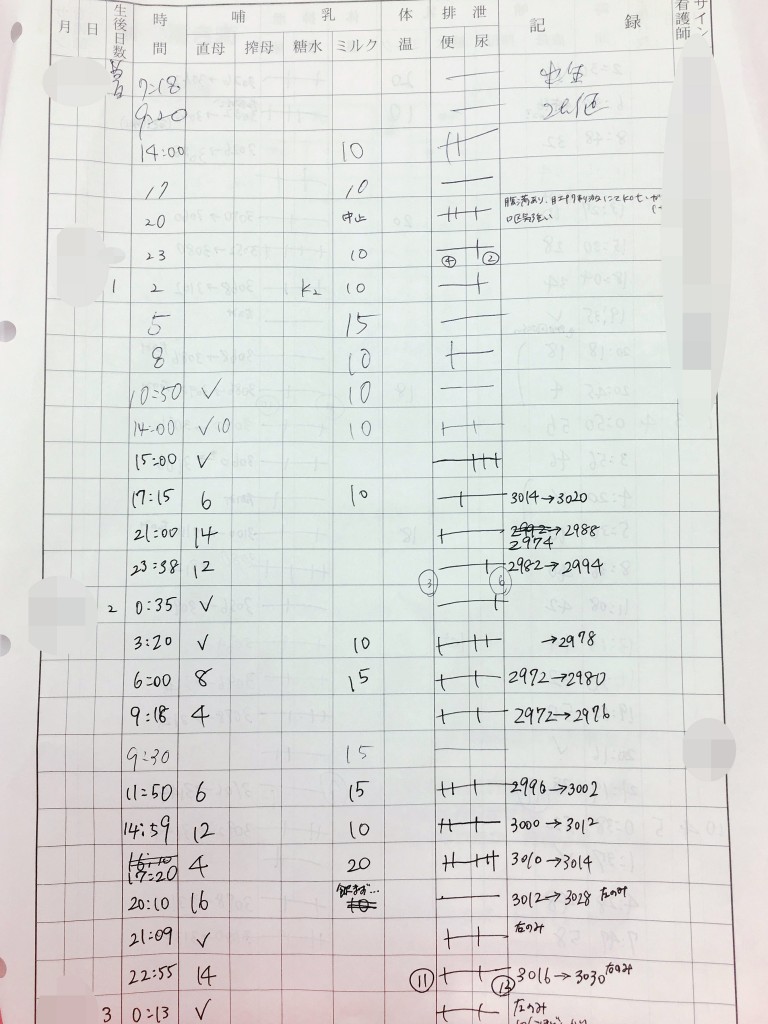 月 日 生後日数 時間 哺乳 体温 排泄 記録 看護師サイン
直母 搾母 糖水 ミルク 便 尿
7:18 出生
9:20
14:00 10
17 10
20 中止 腹満あり、
23 10 ④ ②
1 2 K2 10
5 15
8 10
10:50 ✓ 10
14:00 ✓10 10
15:00 ✓
17:15 6 10 3014→3020
21:00 14 2992→2988
2974
23:38 12 2982→2994
③ ⑥
2 0:35 ✓
3:20 ✓ 10 →2978
6:00 8 15 2972→2980
9:18 4 2972→2976
9:30 15
11:50 6 15 2996→3002
14:59 12 10 3000→3012
16:10
17:20 4 20 3010→3014
20:10 16 飲まず… 10 3012→3028 左のみ
21:09 ✓ 左のみ
22:55 14 ⑪ 3016→3030 右のみ
3 0:13 ✓ 左のみ